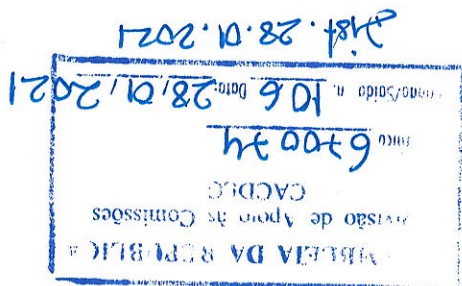 MBLEIA DA REPÚBLICA
Divisão de Apoio às Comissões
CACDLG
Único 670074
ntrada/Saída n. 106 Data: 28/01/2021
Dist. 28.01.2021